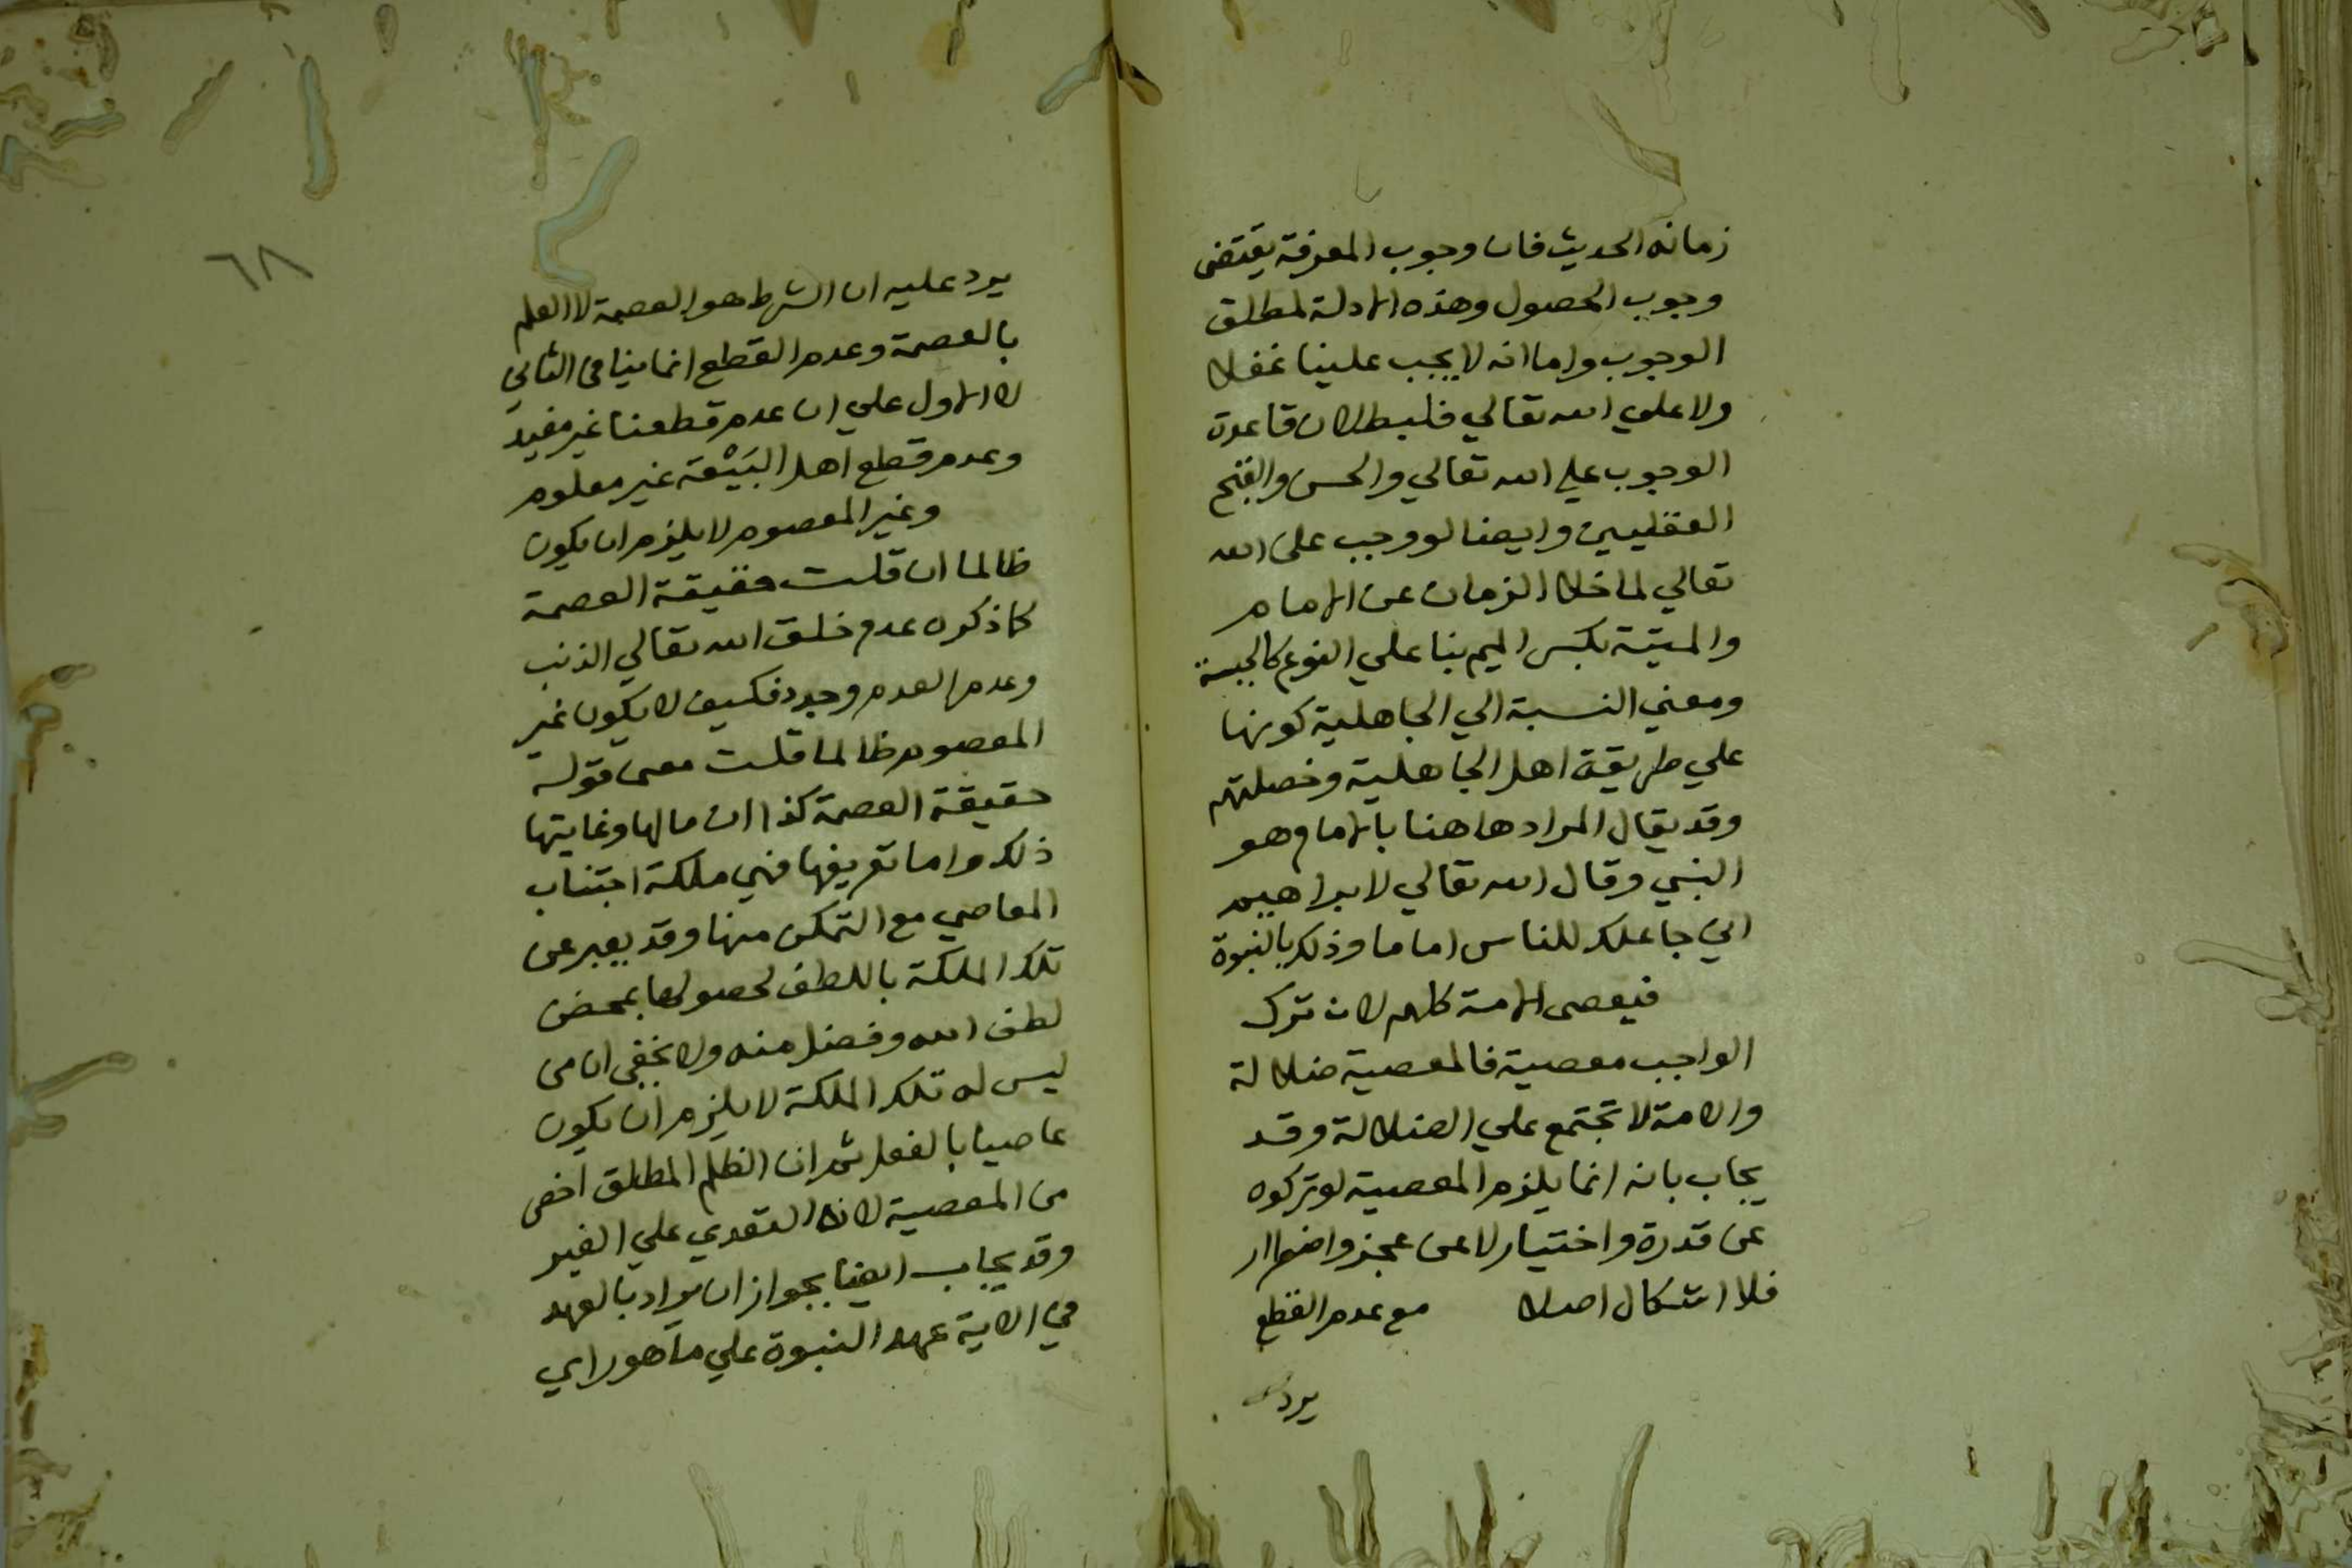 زمانه الحديث فان وجوب المعرفة يقتضى
وجوب الحصول وهذه الادلة لمطلق
الوجوب واما انه لا يجب علينا عقلا
ولا على الله تعالي فلبطلان قاعدة
الوجوب على الله تعالي والحسن والقبح
العقليين وايضا لو وجب على الله
تعالي لما خلا الزمان عن الامام
والميتة بكسر الميم بنا علي النوع كالجلسة
ومعني النسبة الي الجاهلية كونها
علي طريقة اهل الجاهلية وخصلتهم
وقد يقال المراد هاهنا بالامام هو
النبي وقال الله تعالي لابراهيم
اني جاعلك للناس اماما وذلك بالنبوة
فيعصى الامة كلهم لان ترك
الواجب معصية فالمعصية ضلالة
والامة لا تجتمع علي الضلالة وقد
يجاب بانه انما يلزم المعصية لو تركوه
عن قدرة واختيار لا عن عجز واضطرار
فلا اشكال اصلا مع عدم القطع
يرد
٦٨
يرد عليه ان الشرط هو العصمة لا العلم
بالعصمة وعدم القطع انما ينافى الثاني
لا الاول علي ان عدم قطعنا غير مفيد
وعدم قطع اهل البيعة غير معلوم
وغير المعصوم لا يلزم ان يكون
ظالما ان قلت حقيقة العصمة
كما ذكروه عدم خلق الله تعالي الذنب
وعدم العدم وجود فكيف لا يكون غير
المعصوم ظالما قلت معنى قوله
حقيقة العصمة كذا ان مالها وغايتها
ذلك واما تعريفها فهي ملكة اجتناب
المعاصي مع التمكن منها وقد يعبر عن
تلك الملكة باللطف لحصولها بمحض
لطف الله وفضل منه ولا يخفى ان من
ليس له تلك الملكة لا يلزم ان يكون
عاصيا بالفعل ثم ان الظلم المطلق اخص
من المعصية لانه التعدي علي الغير
وقد يجاب ايضا بجواز ان يراد بالعهد
في الاية عهد النبوة علي ما هو راي